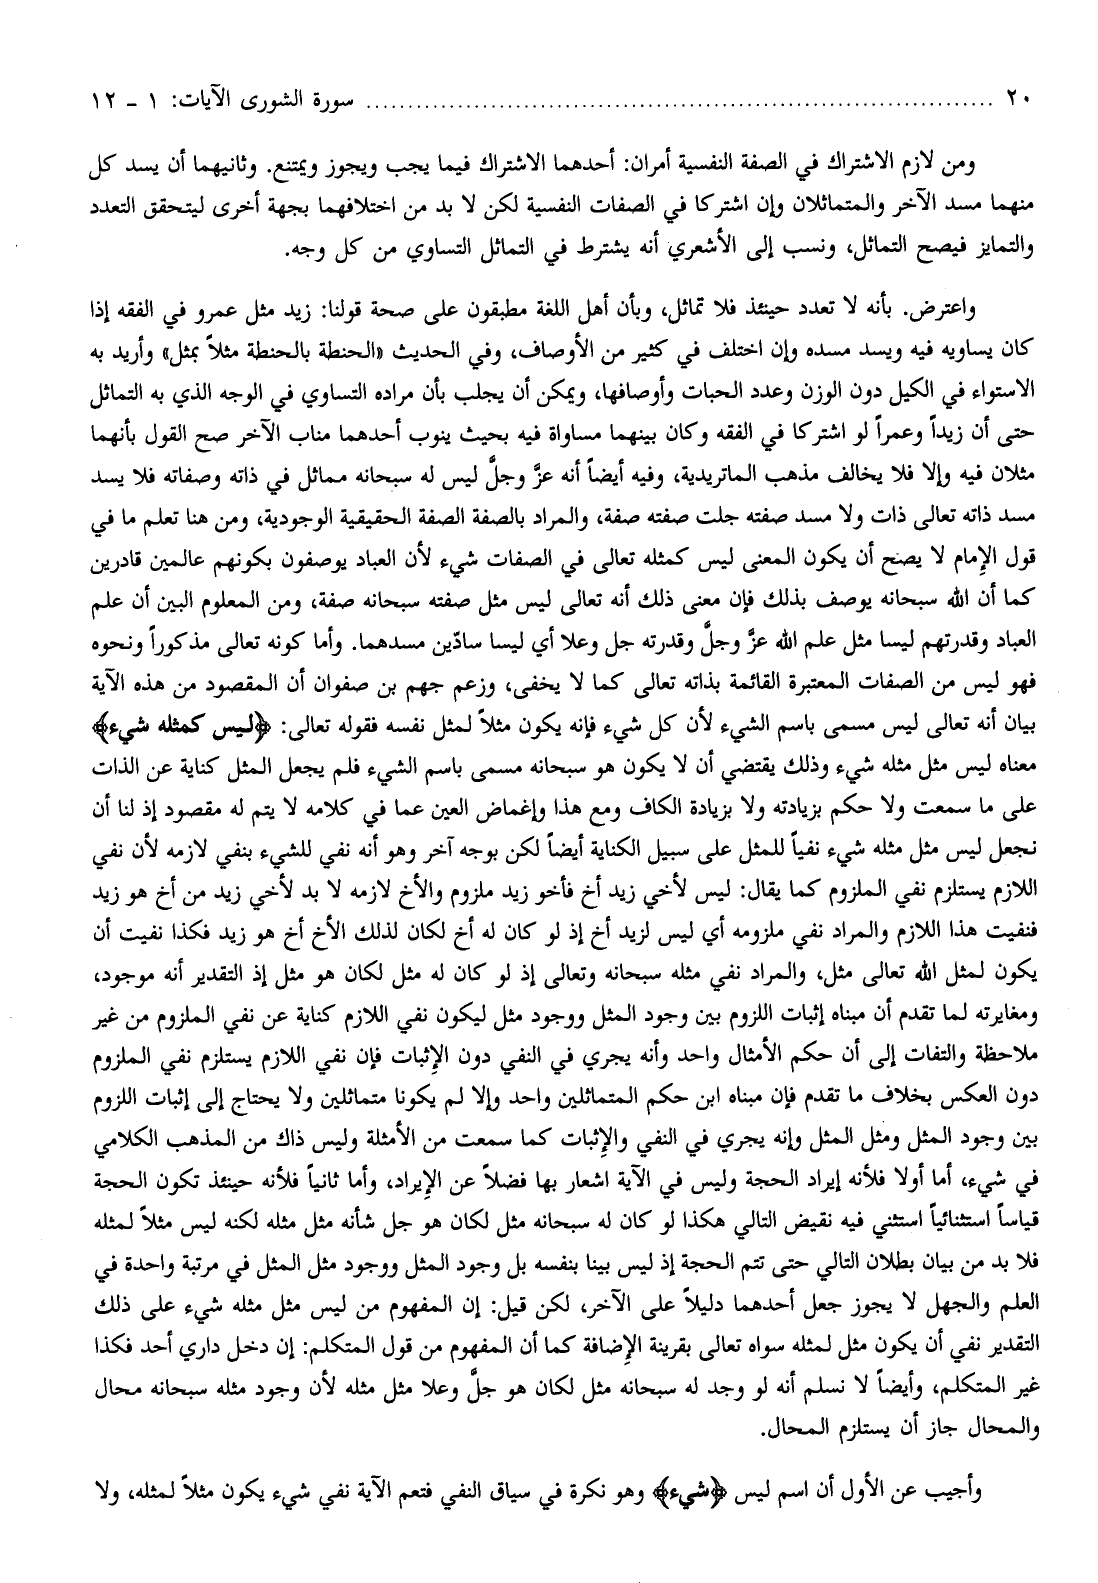 ٢٠ ........................................................................ سورة الشورى الآيات: ١ - ١٢
ومن لازم الاشتراك في الصفة النفسية أمران: أحدهما الاشتراك فيما يجب ويجوز ويمتنع. وثانيهما أن يسد كل
منهما مسد الآخر والمتماثلان وإن اشتركا في الصفات النفسية لكن لا بد من اختلافهما بجهة أخرى ليتحقق التعدد
والتمايز فيصح التماثل، ونسب إلى الأشعري أنه يشترط في التماثل التساوي من كل وجه.
واعترض. بأنه لا تعدد حينئذ فلا تماثل، وبأن أهل اللغة مطبقون على صحة قولنا: زيد مثل عمرو في الفقه إذا
كان يساويه فيه ويسد مسده وإن اختلف في كثير من الأوصاف، وفي الحديث «الحنطة بالحنطة مثلاً بمثل» وأريد به
الاستواء في الكيل دون الوزن وعدد الحبات وأوصافها، ويمكن أن يجلب بأن مراده التساوي في الوجه الذي به التماثل
حتى أن زيداً وعمراً لو اشتركا في الفقه وكان بينهما مساواة فيه بحيث ينوب أحدهما مناب الآخر صح القول بأنهما
مثلان فيه وإلا فلا يخالف مذهب الماتريدية، وفيه أيضاً أنه عزَّ وجلَّ ليس له سبحانه مماثل في ذاته وصفاته فلا يسد
مسد ذاته تعالى ذات ولا مسد صفته جلت صفته صفة، والمراد بالصفة الصفة الحقيقية الوجودية، ومن هنا تعلم ما في
قول الإمام لا يصح أن يكون المعنى ليس كمثله تعالى في الصفات شيء لأن العباد يوصفون بكونهم عالمين قادرين
كما أن الله سبحانه يوصف بذلك فإن معنى ذلك أنه تعالى ليس مثل صفته سبحانه صفة، ومن المعلوم البين أن علم
العباد وقدرتهم ليسا مثل علم الله عزَّ وجلَّ وقدرته جل وعلا أي ليسا سادّين مسدهما. وأما كونه تعالى مذكوراً ونحوه
فهو ليس من الصفات المعتبرة القائمة بذاته تعالى كما لا يخفى، وزعم جهم بن صفوان أن المقصود من هذه الآية
بيان أنه تعالى ليس مسمى باسم الشيء لأن كل شيء فإنه يكون مثلاً لمثل نفسه فقوله تعالى: ﴿ليس كمثله شيء﴾
معناه ليس مثل مثله شيء وذلك يقتضي أن لا يكون هو سبحانه مسمى باسم الشيء فلم يجعل المثل كناية عن الذات
على ما سمعت ولا حكم بزيادته ولا بزيادة الكاف ومع هذا وإغماض العين عما في كلامه لا يتم له مقصود إذ لنا أن
نجعل ليس مثل مثله شيء نفياً للمثل على سبيل الكناية أيضاً لكن بوجه آخر وهو أنه نفي للشيء بنفي لازمه لأن نفي
اللازم يستلزم نفي الملزوم كما يقال: ليس لأخي زيد أخ فأخو زيد ملزوم والأخ لازمه لا بد لأخي زيد من أخ هو زيد
فنفيت هذا اللازم والمراد نفي ملزومه أي ليس لزيد أخ إذ لو كان له أخ لكان لذلك الأخ أخ هو زيد فكذا نفيت أن
يكون لمثل الله تعالى مثل، والمراد نفي مثله سبحانه وتعالى إذ لو كان له مثل لكان هو مثل إذ التقدير أنه موجود،
ومغايرته لما تقدم أن مبناه إثبات اللزوم بين وجود المثل ووجود مثل ليكون نفي اللازم كناية عن نفي الملزوم من غير
ملاحظة والتفات إلى أن حكم الأمثال واحد وأنه يجري في النفي دون الإثبات فإن نفي اللازم يستلزم نفي الملزوم
دون العكس بخلاف ما تقدم فإن مبناه ابن حكم المتماثلين واحد وإلا لم يكونا متماثلين ولا يحتاج إلى إثبات اللزوم
بين وجود المثل ومثل المثل وإنه يجري في النفي والإثبات كما سمعت من الأمثلة وليس ذاك من المذهب الكلامي
في شيء، أما أولا فلأنه إيراد الحجة وليس في الآية اشعار بها فضلاً عن الإيراد، وأما ثانياً فلأنه حينئذ تكون الحجة
قياساً استثنائياً استثني فيه نقيض التالي هكذا لو كان له سبحانه مثل لكان هو جل شأنه مثل مثله لكنه ليس مثلاً لمثله
فلا بد من بيان بطلان التالي حتى تتم الحجة إذ ليس بينا بنفسه بل وجود المثل ووجود مثل المثل في مرتبة واحدة في
العلم والجهل لا يجوز جعل أحدهما دليلاً على الآخر، لكن قيل: إن المفهوم من ليس مثل مثله شيء على ذلك
التقدير نفي أن يكون مثل لمثله سواه تعالى بقرينة الإضافة كما أن المفهوم من قول المتكلم: إن دخل داري أحد فكذا
غير المتكلم، وأيضاً لا نسلم أنه لو وجد له سبحانه مثل لكان هو جلَّ وعلا مثل مثله لأن وجود مثله سبحانه محال
والمحال جاز أن يستلزم المحال.
وأجيب عن الأول أن اسم ليس ﴿شيء﴾ وهو نكرة في سياق النفي فتعم الآية نفي شيء يكون مثلاً لمثله، ولا